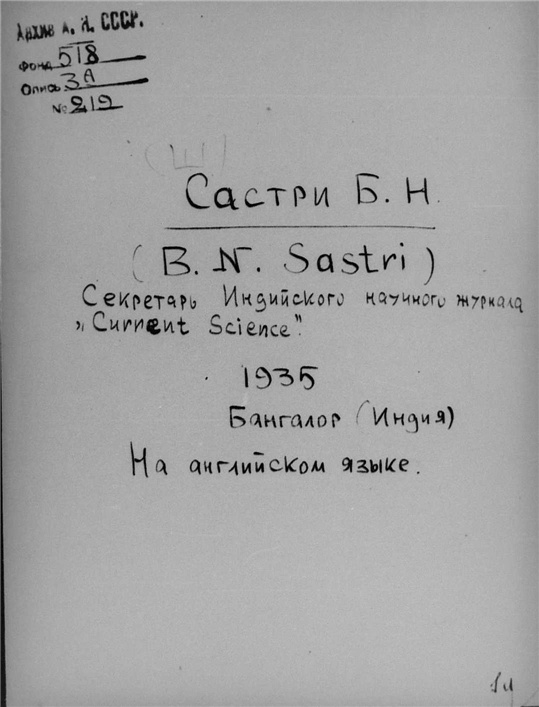 Архив А. Н. СССР.
Фонд 518
Опись 3А
№ 219
(Ш)
Састри Б. Н.
(B. N. Sastri)
Секретарь Индийского научного журнала
„Current Science".
1935
Бангалор (Индия)
На английском языке.